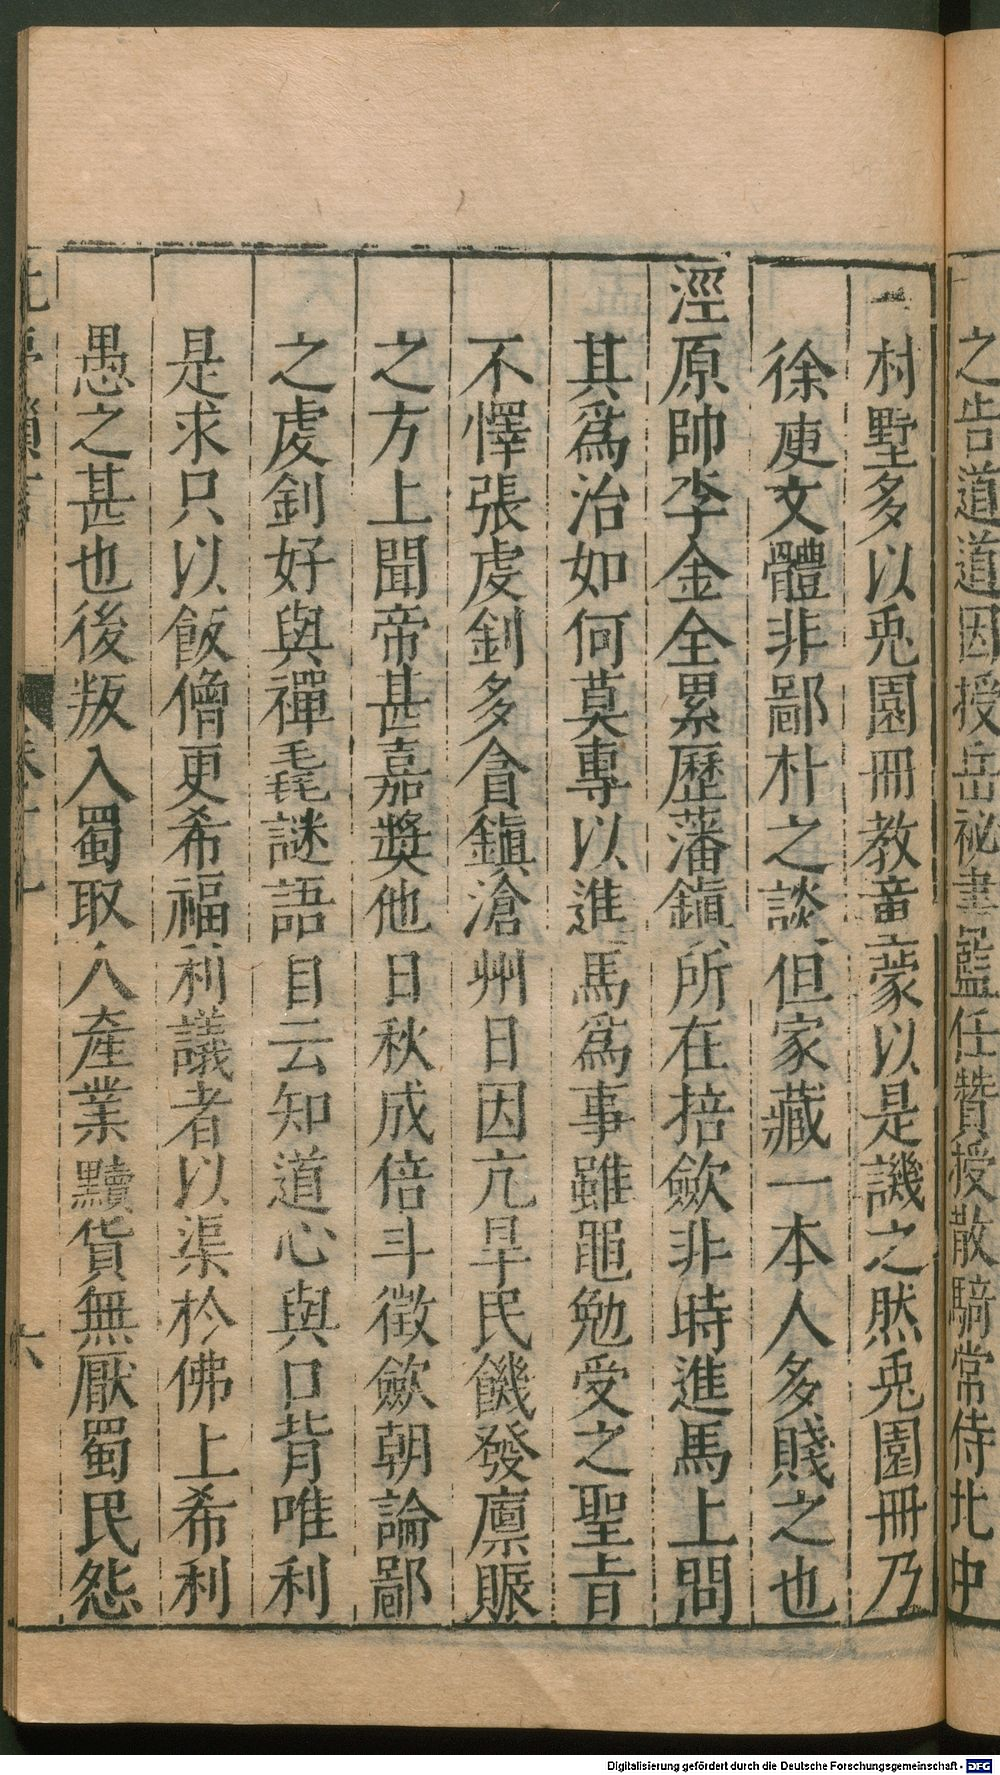 之告道道因授岳祕書監任贊授散騎常侍北中
村墅多以兎園冊教童蒙以是譏之然兎園冊乃
徐庾文體非鄙朴之談但家藏一本人多賤之也
涇原帥李金全累歷藩鎮所在掊歛非時進馬上問
其爲治如何莫專以進馬爲事雖黽勉受之聖旨
不懌張虔釗多貪鎮滄州日因亢旱民饑發廩賑
之方上聞帝甚嘉奬他日秋成倍斗徵歛朝論鄙
之虔釗好與禪毳謎語自云知道心與口背唯利
是求只以飯僧更希福利議者以渠於佛上希利
愚之甚也後叛入蜀取人產業黷貨無厭蜀民怨
北夢瑣言 卷十九 六
Digitalisierung gefördert durch die Deutsche Forschungsgemeinschaft - DFG